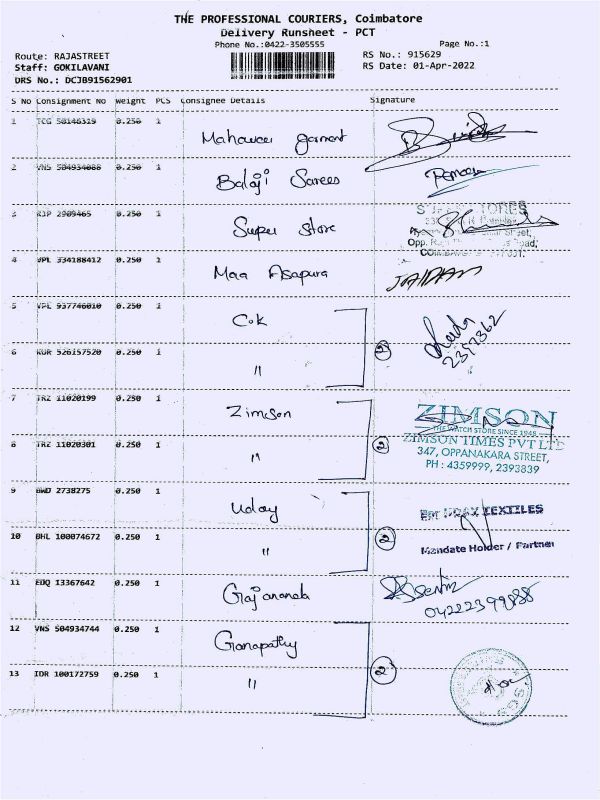 THE PROFESSIONAL COURIERS, Coimbatore
Delivery Runsheet - PCT
Phone No.:0422-3505555
Page No.:1
Route: RAJASTREET
RS No.: 915629
Staff: GOKILAVANI
RS Date: 01-Apr-2022
DRS No.: DCJB91562901
S No Consignment No Weight PCS Consignee Details Signature
1 TCG 50146319 0.250 1
Mahaveer garment
2 VNS 504934088 0.250 1
Balaji Sarees
3 RJP 2909465 0.250 1
Super Store
COIMBATORE
4 VPL 334188412 0.250 1
Maa Asapura
5 VPL 937746010 0.250 1
Cok
2397362
6 KUR 526157520 0.250 1
" 2
7 TRZ 11020199 0.250 1
Zimson
ZIMSON
THE WATCH STORE SINCE 1948
8 TRZ 11020301 0.250 1
" 2
ZIMSON TIMES PVT LTD
347, OPPANAKARA STREET,
PH : 4359999, 2393839
9 BWD 2738275 0.250 1
Uday
For UDAY TEXTILES
10 BHL 100074672 0.250 1
" 2
Mandate Holder / Partner
11 EDQ 13367642 0.250 1
Gajananda
04222399888
12 VNS 504934744 0.250 1
Ganapathy
13 IDR 100172759 0.250 1
" 2